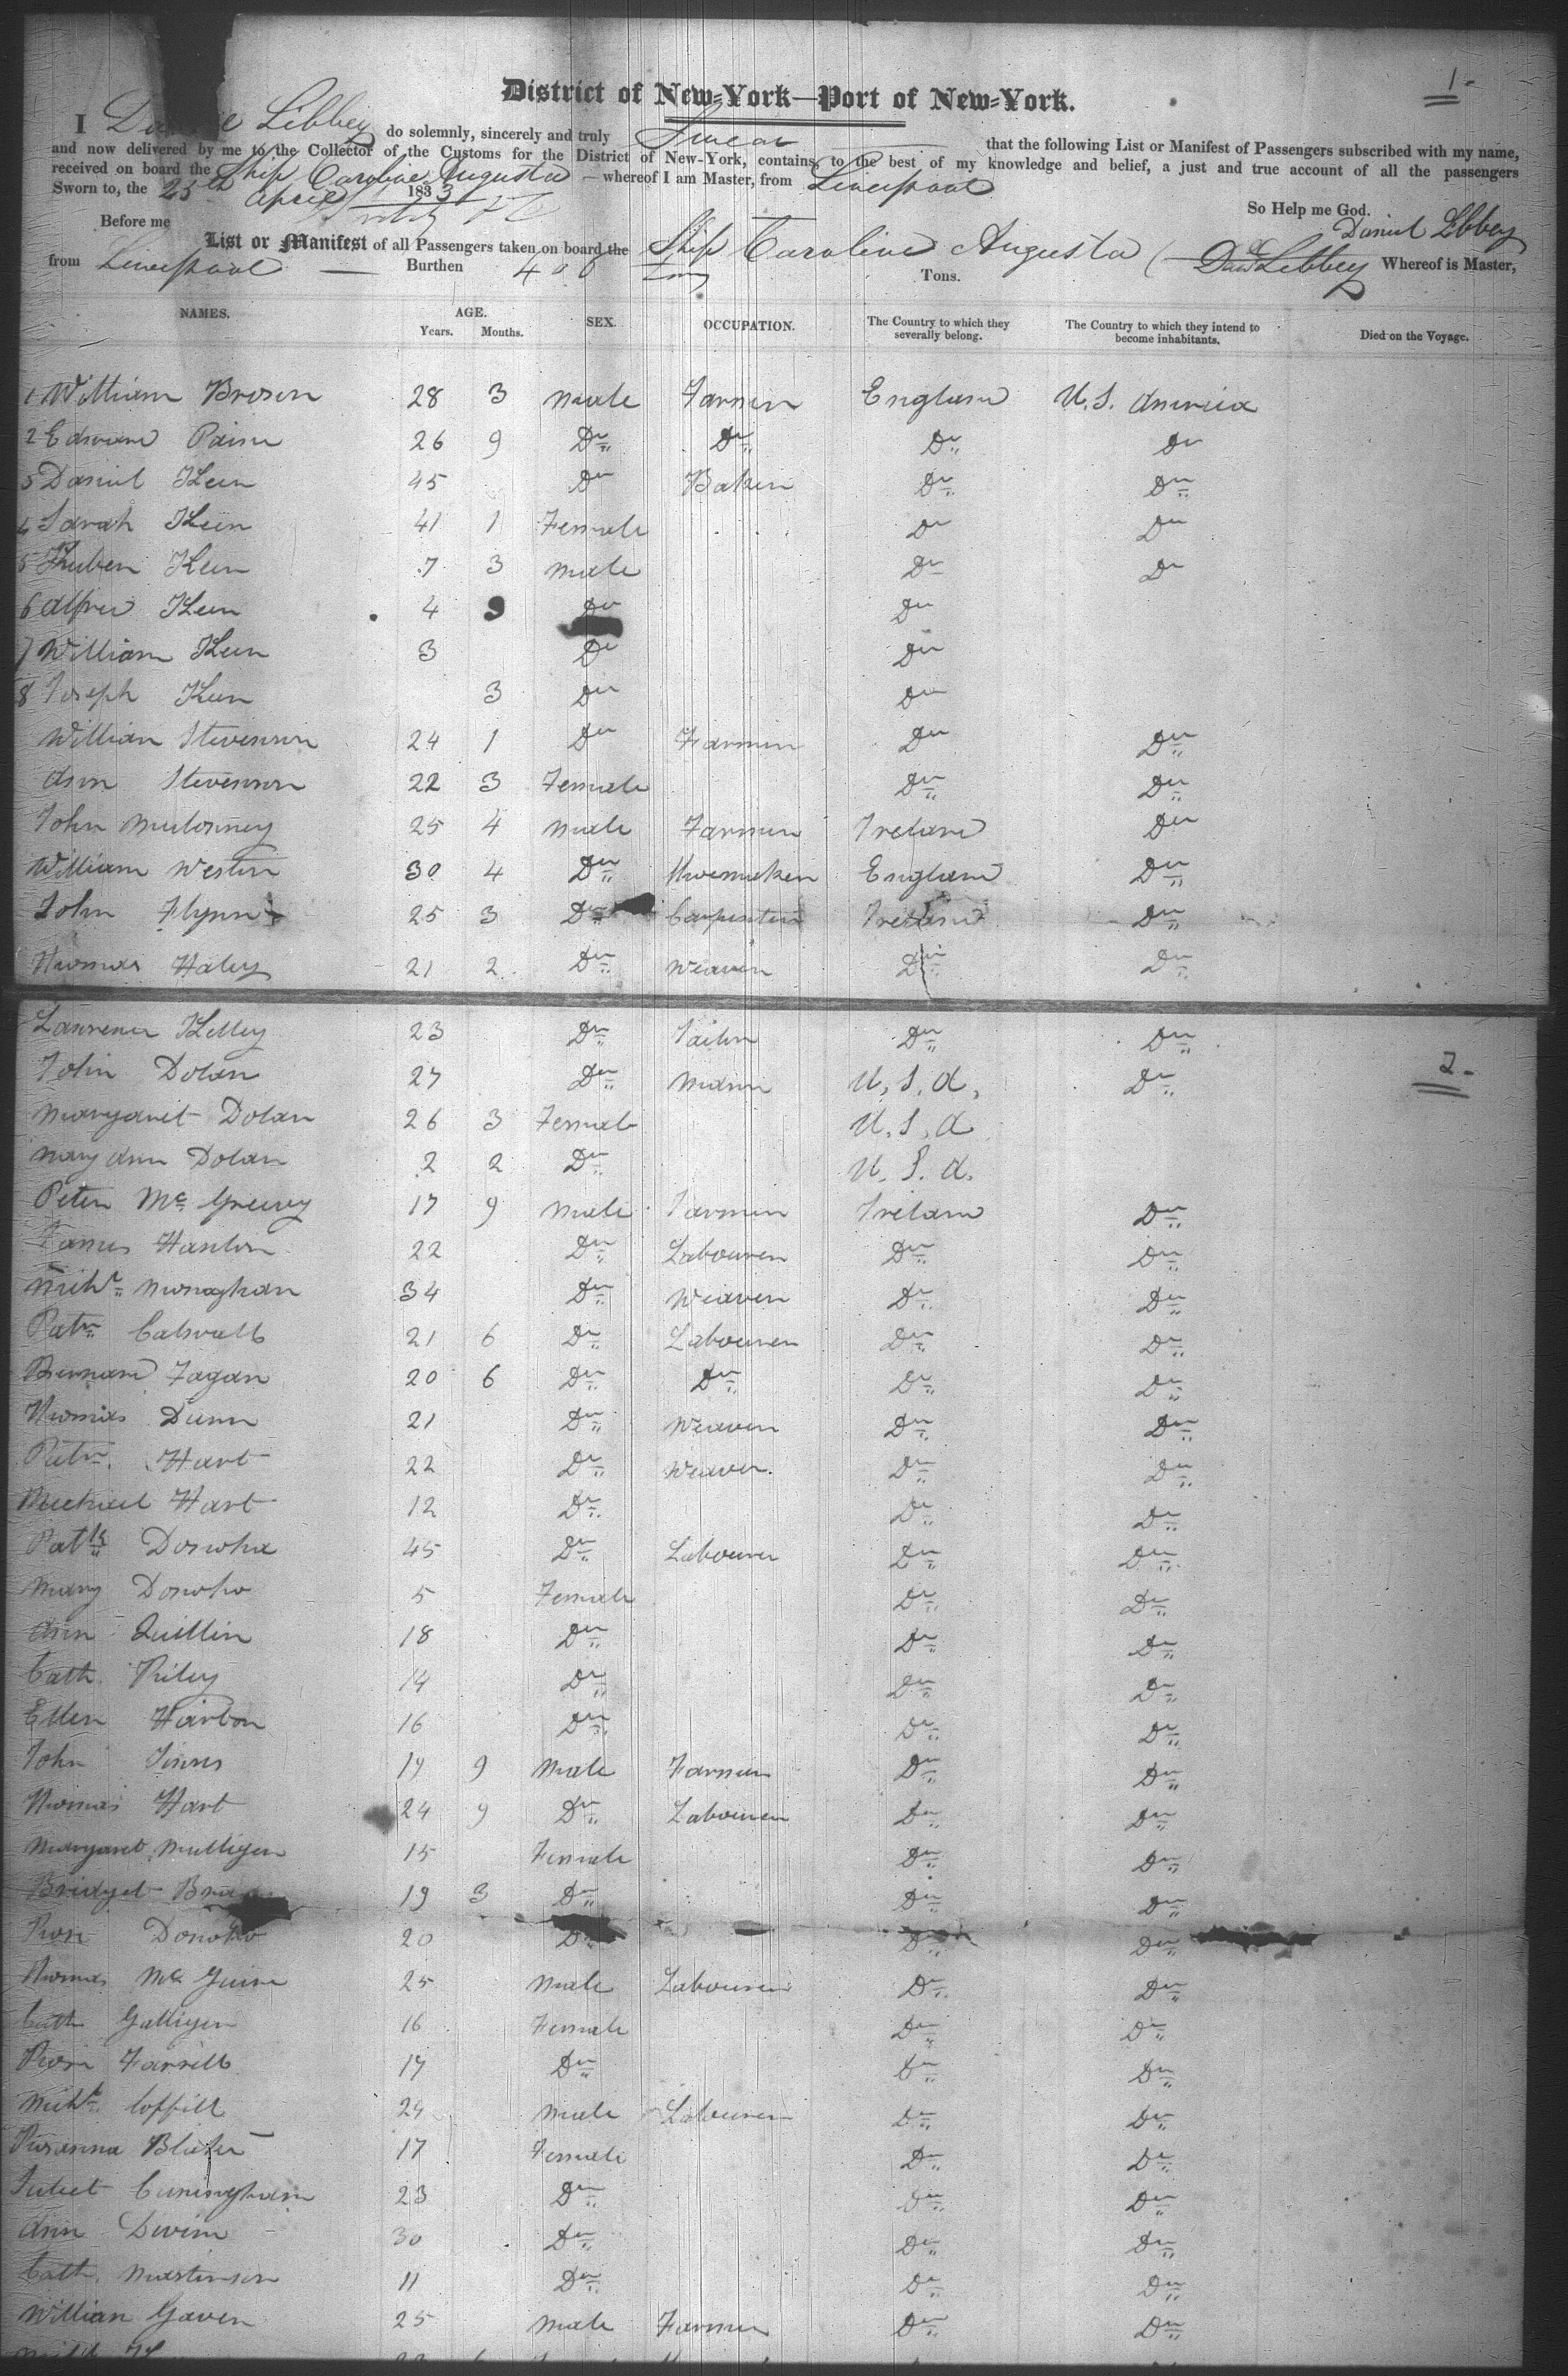 1-
District of New-York—Port of New-York.
I Libbey do solemnly, sincerely and truly Swear that the following List or Manifest of Passengers subscribed with my name,
and now delivered by me to the Collector of the Customs for the District of New-York, contains, to the best of my knowledge and belief, a just and true account of all the passengers
received on board the Ship Caroline Augusta whereof I am Master, from Liverpool
Sworn to, the 25th April 1833
So Help me God.
Before me
Daniel Libbey
List or Manifest of all Passengers taken on board the Ship Caroline Augusta
from Liverpool Burthen Tons. Libbey Whereof is Master,
NAMES. AGE. Years. Months. SEX. OCCUPATION. The Country to which they severally belong. The Country to which they intend to become inhabitants. Died on the Voyage.
1 William Brown 28 3 Male Farmer England U.S. America
2 Edward Paine 26 9 Do Do Do Do
3 Daniel Keen 45 Do Baker Do Do
4 Sarah Keen 41 1 Female Do Do
5 Reuben Keen 7 3 Male Do Do
6 Alfred Keen 4 9 Do Do
7 William Keen 3 Do Do
8 Joseph Keen 3 Do Do
William Stevenson 24 1 Do Farmer Do Do
Ann Stevenson 22 3 Female Do Do
John 25 4 Male Farmer Ireland Do
William Weston 30 4 Do Shoemaker England Do
John Flynn 25 3 Do Carpenter Ireland Do
Thomas Haley 21 2 Do Weaver Do Do
Lawrence Kelley 23 Do Tailor Do Do
2-
John Dolan 27 Do Mason U.S.A. Do
Margaret Dolan 26 3 Female U.S.A
Mary Ann Dolan 2 2 Do U.S.A.
Peter Mc Greevy 17 9 Male Farmer Ireland Do
James Hanlon 22 Do Labourer Do Do
Michl Monaghan 34 Do Weaver Do Do
Patk 21 6 Do Labourer Do Do
Bernard Fagan 20 6 Do Do Do Do
Thomas Dunn 21 Do Weaver Do Do
Patk Hart 22 Do Weaver Do Do
Michael Hart 12 Do Do Do
Patk Donoho 45 Do Labourer Do Do
Mary Donoho 5 Female Do Do
Ann Quillin 18 Do Do Do
Cath. Riley 14 Do Do Do
Ellen 16 Do Do Do
John 19 9 Male Farmer Do Do
Thomas Hart 24 9 Do Labourer Do Do
Margaret Mulligen 15 Female Do Do
Bridget 19 3 Do Do Do
Rose Donoho 20 Do Do Do
Thomas Mc Guire 25 Male Labourer Do Do
Cath Galligen 16 Female Do Do
Rose Farrell 17 Do Do Do
Michl Coffill 24 Male Labourer Do Do
Rosanna 17 Female Do Do
Juliet Cuningham 23 Do Do Do
Ann Devine 30 Do Do Do
Cath. Mastinson 11 Do Do Do
William Gaven 25 Male Farmer Do Do